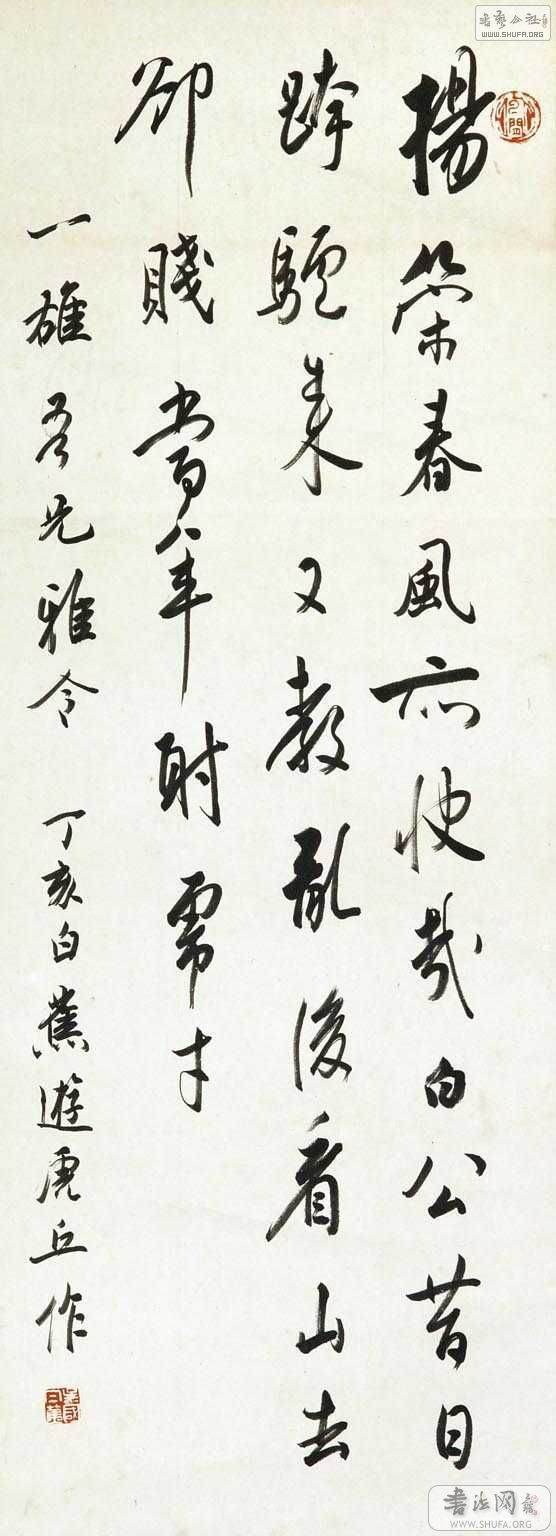 揚策春風亦快哉白公昔日
跨驢來又教亂後看山去
卻賤當年財需才
一雄吾兄雅令
丁亥白蕉遊虎丘作
書法网
WWW.SHUFA.ORG
WWW.SHUFA.ORG